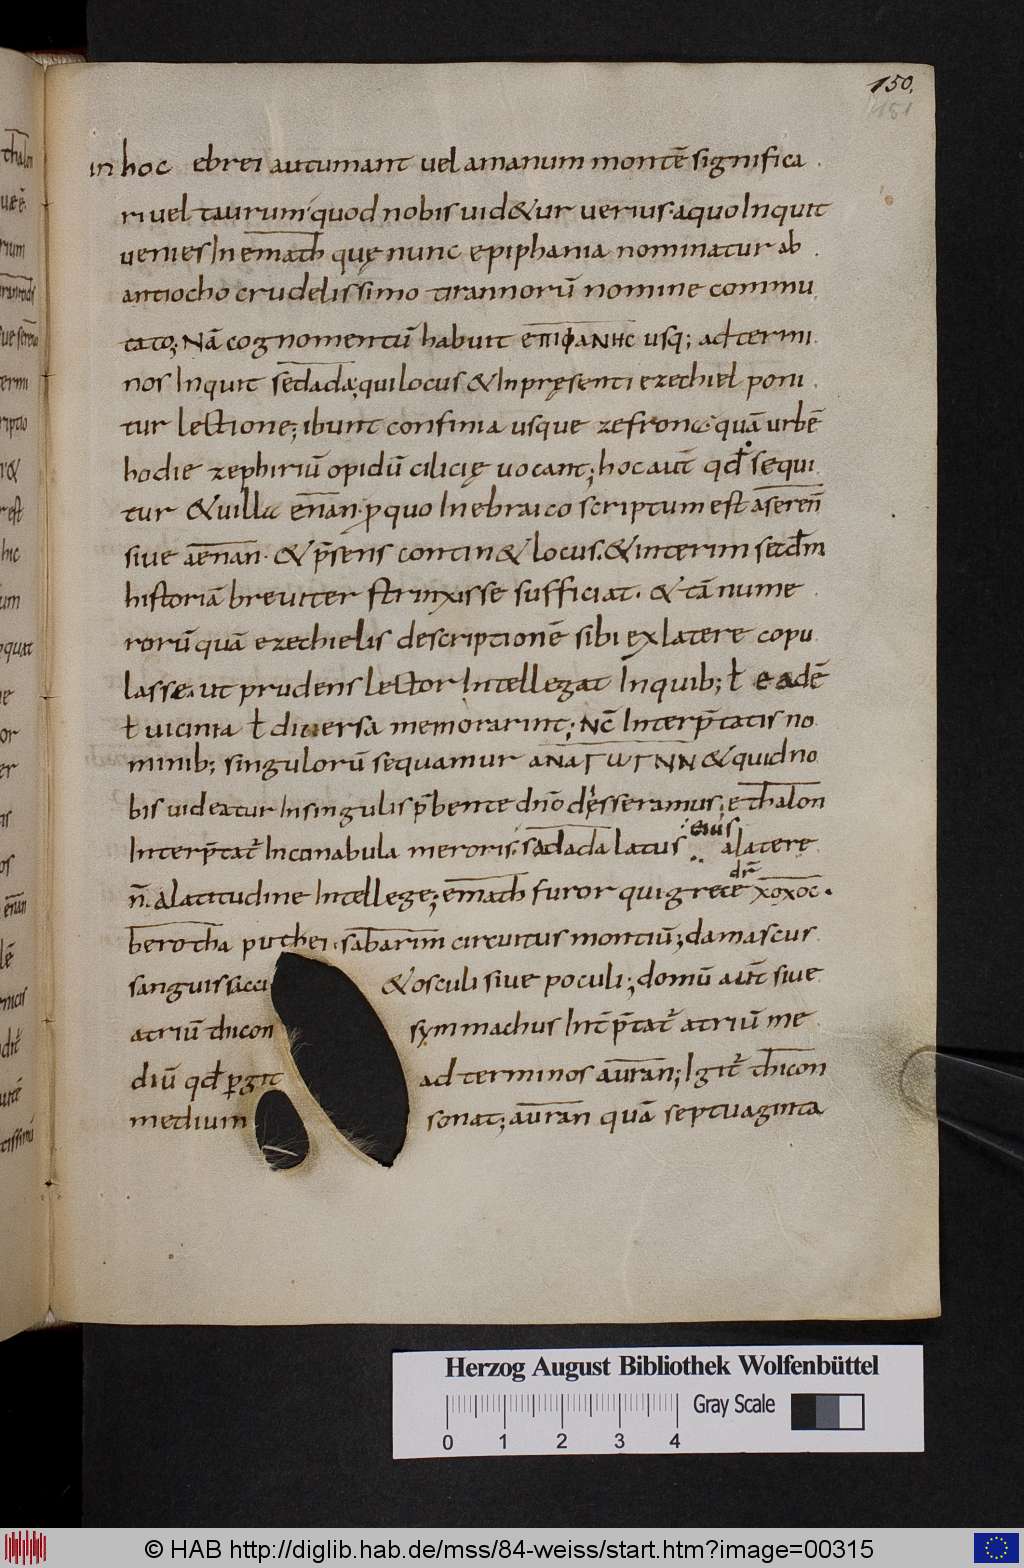 150.
151
in hoc ebrei autumant vel amanum montē significa
ri vel taurum quod nobis vid&ur verius · a quo Inquit
venies In emath quę nunc epiphania nominatur ab
antiocho crudelissimo tirannorū nomine commu
tato; Nā cognomentū habuit eπιφaNHC usq; ad termi
nos Inquit sedada, qui locus & In pręsenti ezechiel poni
tur lectione; ibunt confinia usque zefrona · quā urbē
hodie zephiriū opidū cilicię vocant; hoc aut̄ qđ sequi
tur & villa enan · p quo In ebraico scriptum est aserenn̄
sive aenan · & p̄sens contin& locus. & interim secđm
historiā breviter strinxisse sufficiat. & tā nume
rorū quā ezechielis descriptionē sibi ex latere copu
lasse. ut prudens lector Intellegat In quib; ł eadē
ł vicinia ł diversa memorarint; Nc̄ Interp̄tatis no
minib; singulorū sequamur aNaΓωΓNN & quid no
bis videatur In singulis p̄bente dn̄o disseramus; ethalon
Interp̄tat̄ Incunabula meroris; sadada latus eius a latere
n̄. a latitudine Intellege; emath furor qui grece dr̄ xoxoc ·
berotha puthei · sabarim circuitus montiū; damascus
sanguis sicci & osculi sive poculi; domū aut̄ sive
atriū thicon symmachus Int̄p̄tat̄ atriū me
diū qđ pgit ad terminos auran; Igit̄ thicon
medium sonat; auran quā septuaginta
Herzog August Bibliothek Wolfenbüttel
Gray Scale
0 1 2 3 4
© HAB http://diglib.hab.de/mss/84-weiss/start.htm?image=00315